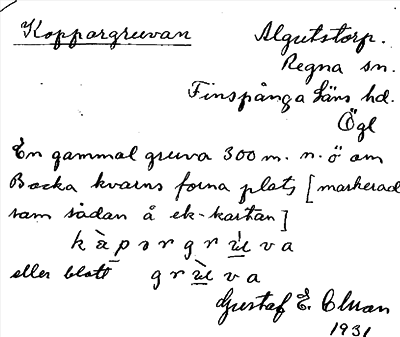 Koppargruvan
Algutstorp.
Regna sn.
Finspånga läns hd.
Ögl
En gammal gruva 300 m. n. ö om
Backa kvarns forna plats [markerad
som sådan å ek-kartan]
k à p ə r g r ù v a
eller blott g r ù v a
Gustaf E.
1931